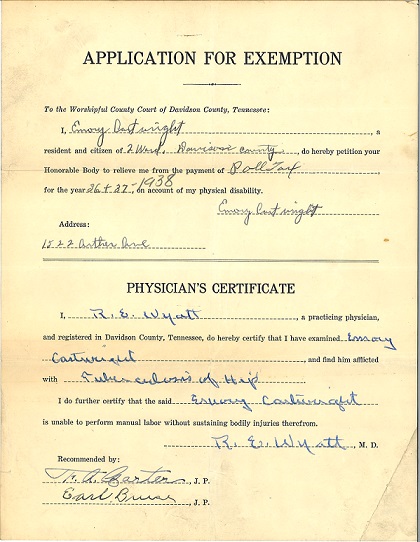 APPLICATION FOR EXEMPTION
To the Worshipful County Court of Davidson County, Tennessee:
I, Emory Cartwright, a
resident and citizen of 2 Ward, Davidson county, do hereby petition your
Honorable Body to relieve me from the payment of Poll Tax
for the year 36 + 37, -1938 on account of my physical disability.
Emory Cartwright
Address:
1522 Arthur Ave
PHYSICIAN'S CERTIFICATE
I, R. E. Wyatt, a practicing physician,
and registered in Davidson County, Tennessee, do hereby certify that I have examined Emory
Cartwright, and find him afflicted
with Tuberculosis of Hip
I do further certify that the said Emory Cartwright
is unable to perform manual labor without sustaining bodily injuries therefrom.
R. E. Wyatt, M. D.
Recommended by:
Carter, J. P.
Earl, J. P.